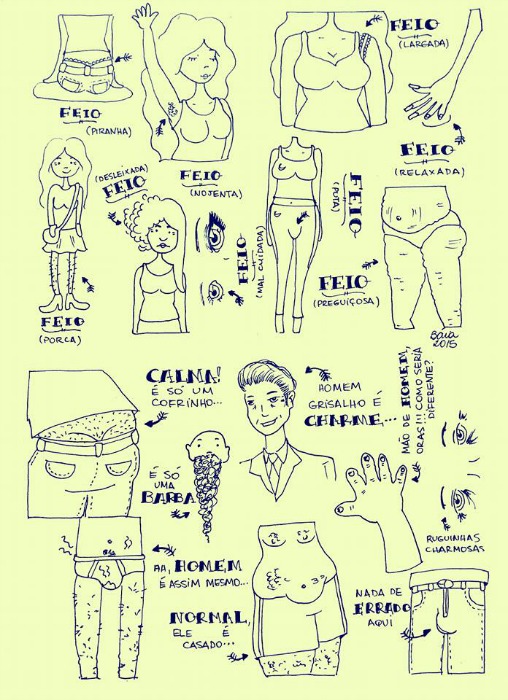 FEIO
(LARGADA)
FEIO
(PIRANHA)
FEIO
(NOJENTA)
FEIO
(RELAXADA)
(DESLEIXADA)
FEIO
FEIO
(PUTA)
FEIO
(MAL CUIDADA)
FEIO
(PREGUIÇOSA)
FEIO
(PORCA)
Baia
2015
CALMA!
É SÓ UM
COFRINHO...
HOMEM
GRISALHO É
CHARME...
MÃO DE HOMEM,
ORAS!!! COMO SERIA
DIFERENTE?
É SÓ
UMA
BARBA
RUGUINHAS
CHARMOSAS
AH, HOMEM
É ASSIM MESMO...
NORMAL,
ELE É
CASADO...
NADA DE
ERRADO
AQUI